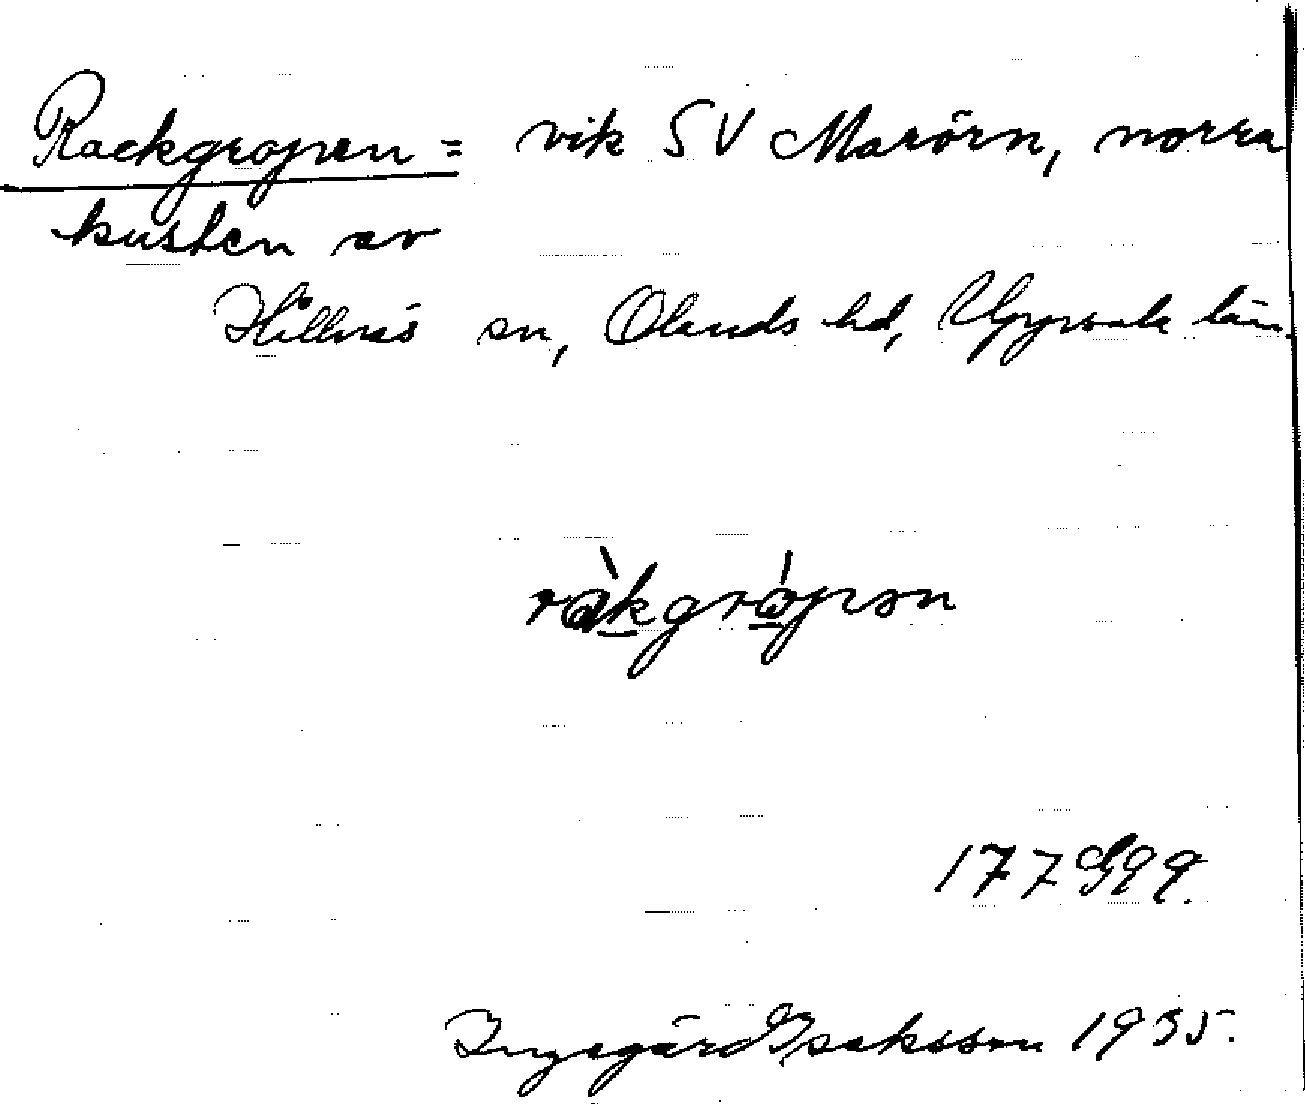 Rackgropen = vik SV Marörn, norra
kusten av
Hållnäs sn, Olands hd, Uppsala län.
ràkgrópən
177 G99.
Ingegärd Isaksson 1935.